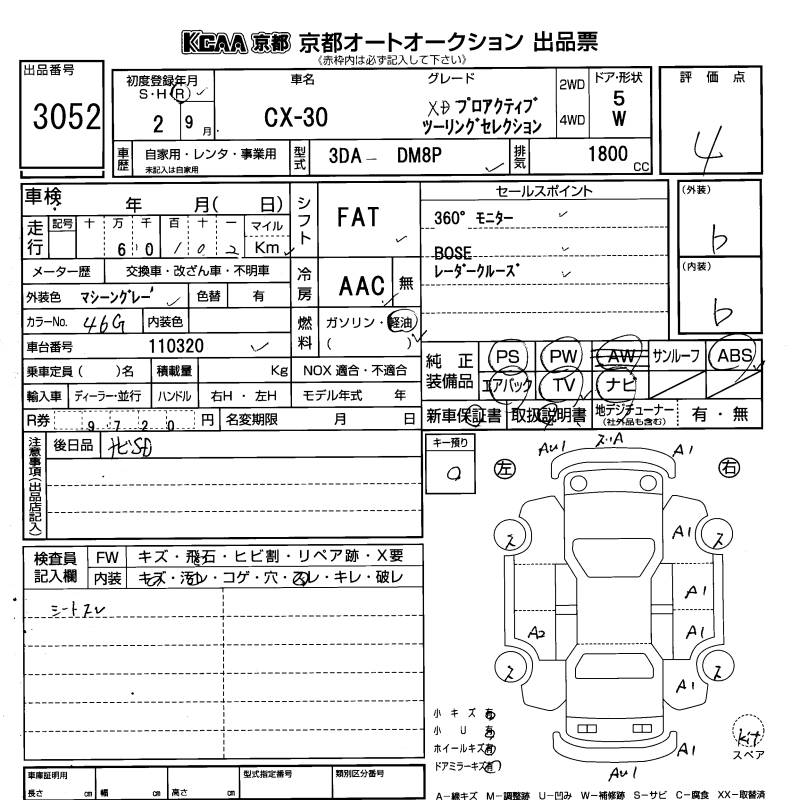 KCAA 京都 京都オートオークション 出品票
《赤枠内は必ず記入して下さい》
出品番号
3052
初度登録年月
S・H(R)
2 9月
車名
CX-30
グレード
XD プロアクティブ
ツーリングセレクション
2WD
4WD
ドア・形状
5
W
評価点
4
車歴
自家用・レンタ・事業用
未記入は自家用
型式
3DA－ DM8P
排気
1800 CC
車検 年 月( 日)
走行
記号 十 万 千 百 十 一
6 0 1 0 2
マイル
Km
シフト
FAT
セールスポイント
360° モニター
BOSE
レーダークルーズ
(外装)
b
(内装)
b
メーター歴 交換車・改ざん車・不明車
冷房
AAC 無
外装色 マシーングレー 色替 有
カラーNo. 46G 内装色
燃料
ガソリン・軽油
( )
車台番号 110320
純正装備品
PS PW AW サンルーフ ABS
エアバック TV ナビ
乗車定員 ( )名 積載量 Kg NOX 適合・不適合
輸入車 ディーラー・並行 ハンドル 右H・左H モデル年式 年
新車保証書 取扱説明書 地デジチューナー (社外品も含む) 有・無
R券 9720 円 名変期限 月 日
注意事項(出品店記入)
後日品 ナビSD
キー預り
0
左
右
検査員記入欄
FW キズ・飛石・ヒビ割・リペア跡・X要
内装 キズ・汚レ・コゲ・穴・スレ・キレ・破レ
シートスレ
AU1 ス・A A1
ス A1 ス
A1
A2 A1
ス A1 ス
A1
AU1
小キズ 有
小U 有
ホイールキズ 有
ドアミラーキズ 有
kit
スペア
車庫証明用
長さ cm 幅 cm 高さ cm
型式指定番号
類別区分番号
A－線キズ M－調整跡 U－凹み W－補修跡 S－サビ C－腐食 XX－取替済